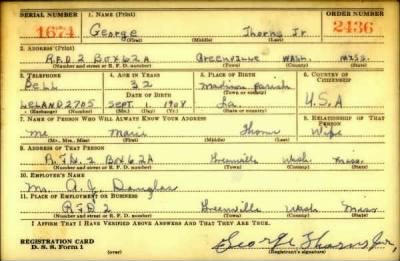 SERIAL NUMBER 1. NAME (Print) ORDER NUMBER
1674 George Thorns Jr. 2436
(First) (Middle) (Last)
2. ADDRESS (Print)
R.F.D. 2 Box 62A Greenville Wash. Miss.
(Number and street or R. F. D. number) (Town) (County) (State)
3. TELEPHONE 4. AGE IN YEARS 5. PLACE OF BIRTH 6. COUNTRY OF CITIZENSHIP
Bell 32 Madison Parish
DATE OF BIRTH (Town or county)
LELAND 2705 SEPT 1 1908 La U.S.A
(Exchange) (Number) (Mo.) (Day) (Yr.) (State or country)
7. NAME OF PERSON WHO WILL ALWAYS KNOW YOUR ADDRESS 8. RELATIONSHIP OF THAT PERSON
Marie Thorns Wife
(Mr., Mrs., Miss) (First) (Middle) (Last)
9. ADDRESS OF THAT PERSON
R.F.D. 2 Box 62A Greenville Wash. Miss.
(Number and street or R. F. D. number) (Town) (County) (State)
10. EMPLOYER'S NAME
Mr. A. J. Douglas
11. PLACE OF EMPLOYMENT OR BUSINESS
R.F.D. 2 Greenville Wash Miss
(Number and street or R. F. D. number) (Town) (County) (State)
I AFFIRM THAT I HAVE VERIFIED ABOVE ANSWERS AND THAT THEY ARE TRUE.
REGISTRATION CARD
D. S. S. Form 1 (over) George Thorns Jr.
(Registrant's signature)